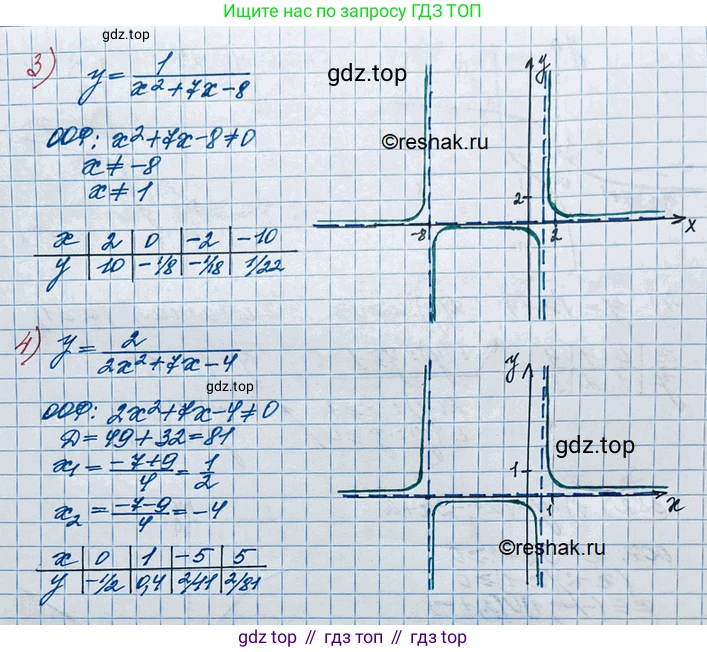 Ищите нас по запросу ГДЗ ТОП
gdz.top
3) y = 1/(x²+7x-8)
ООФ: x²+7x-8≠0
x ≠ -8
x ≠ 1
x | 2 | 0 | -2 | -10
y | 10 | -1/8 | -1/18 | 1/22
gdz.top
©reshak.ru
y
2
-8
2
x
4) y = 2/(2x²+7x-4)
gdz.top
ООФ: 2x²+7x-4≠0
D = 49+32=81
x₁ = (-7+9)/4 = 1/2
x₂ = (-7-9)/4 = -4
x | 0 | 1 | -5 | 5
y | -1/2 | 0,4 | 2/11 | 2/81
y
gdz.top
1
1
x
©reshak.ru
gdz top // гдз топ // gdz top